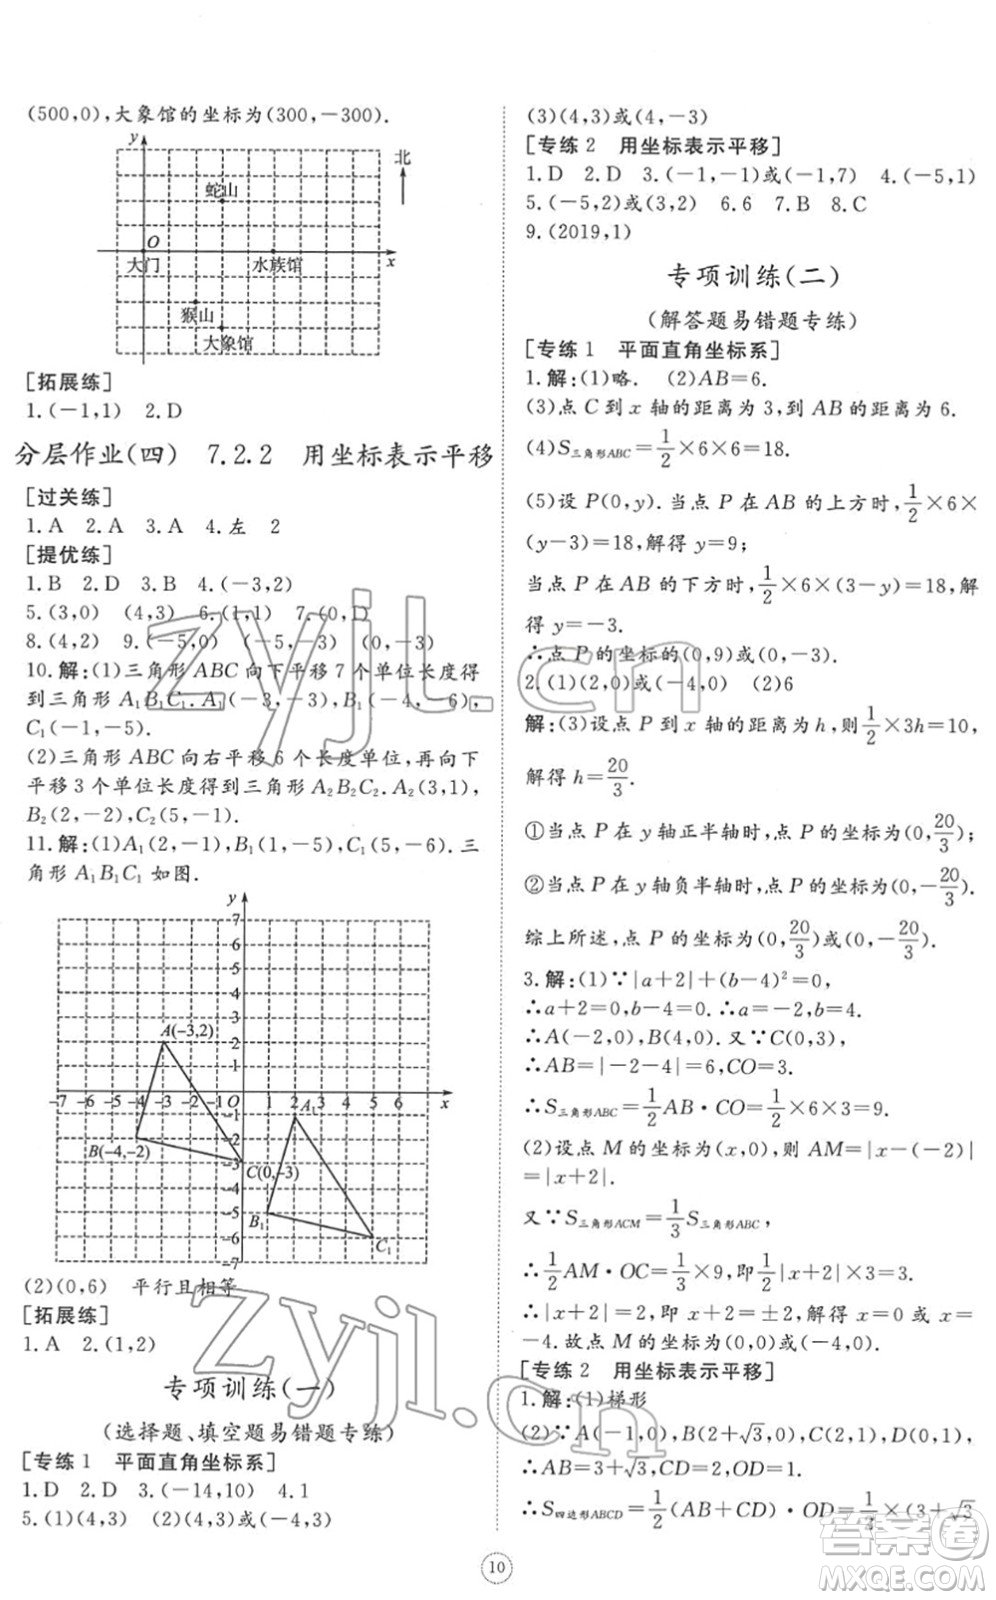 (500,0),大象馆的坐标为(300,-300).
y
北
蛇山
O
大门
水族馆
x
猴山
大象馆
[拓展练]
1.(-1,1) 2.D
分层作业(四) 7.2.2 用坐标表示平移
[过关练]
1.A 2.A 3.A 4.左 2
[提优练]
1.B 2.D 3.B 4.(-3,2)
5.(3,0) (4,3) 6.(1,1) 7.(0,1)
8.(4,2) 9.(-5,0) (-5,-3) (0,-3)
10.解:(1)三角形 ABC 向下平移 7 个单位长度得
到三角形 A₁B₁C₁.A₁(-3,-3),B₁(-4,-6),
C₁(-1,-5).
(2)三角形 ABC 向右平移 6 个长度单位,再向下
平移 3 个单位长度得到三角形 A₂B₂C₂.A₂(3,1),
B₂(2,-2),C₂(5,-1).
11.解:(1)A₁(2,-1),B₁(1,-5),C₁(5,-6).三
角形 A₁B₁C₁ 如图.
y
7
6
5
4
3
2
1
A(-3,2)
-7 -6 -5 -4 -3 -2 -1 O 1 2 3 4 5 6 x
-1
-2
-3
-4
-5
-6
-7
A₁
B(-4,-2)
C(0,-3)
B₁
C₁
(2)(0,6) 平行且相等
[拓展练]
1.A 2.(1,2)
专项训练(一)
(选择题、填空题易错题专练)
[专练 1 平面直角坐标系]
1.D 2.D 3.(-14,10) 4.1
5.(1)(4,3) (2)(4,3)或(-4,3)
(3)(4,3)或(4,-3)
[专练 2 用坐标表示平移]
1.D 2.D 3.(-1,-1)或(-1,7) 4.(-5,1)
5.(-5,2)或(3,2) 6.6 7.B 8.C
9.(2019,1)
专项训练(二)
(解答题易错题专练)
[专练 1 平面直角坐标系]
1.解:(1)略. (2)AB=6.
(3)点 C 到 x 轴的距离为 3,到 AB 的距离为 6.
(4)S三角形ABC=1/2×6×6=18.
(5)设 P(0,y).当点 P 在 AB 的上方时,1/2×6×
(y-3)=18,解得 y=9;
当点 P 在 AB 的下方时,1/2×6×(3-y)=18,解
得 y=-3.
∴点 P 的坐标的(0,9)或(0,-3).
2.(1)(2,0)或(-4,0) (2)6
解:(3)设点 P 到 x 轴的距离为 h,则1/2×3h=10,
解得 h=20/3.
①当点 P 在 y 轴正半轴时,点 P 的坐标为(0,20/3);
②当点 P 在 y 轴负半轴时,点 P 的坐标为(0,-20/3).
综上所述,点 P 的坐标为(0,20/3)或(0,-20/3).
3.解:(1)∵|a+2|+(b-4)²=0,
∴a+2=0,b-4=0.∴a=-2,b=4.
∴A(-2,0),B(4,0).又∵C(0,3),
∴AB=|-2-4|=6,CO=3.
∴S三角形ABC=1/2AB·CO=1/2×6×3=9.
(2)设点 M 的坐标为(x,0),则 AM=|x-(-2)|
=|x+2|.
又∵S三角形ACM=1/3S三角形ABC,
∴1/2AM·OC=1/3×9,即1/2|x+2|×3=3.
∴|x+2|=2,即 x+2=±2,解得 x=0 或 x=
-4.故点 M 的坐标为(0,0)或(-4,0).
[专练 2 用坐标表示平移]
1.解:(1)梯形
(2)∵A(-1,0),B(2+√3,0),C(2,1),D(0,1),
∴AB=3+√3,CD=2,OD=1.
∴S四边形ABCD=1/2(AB+CD)·OD=1/2×(3+√3
10
zyjl.cn
zyjl.cn
答案圈
MXQE.COM